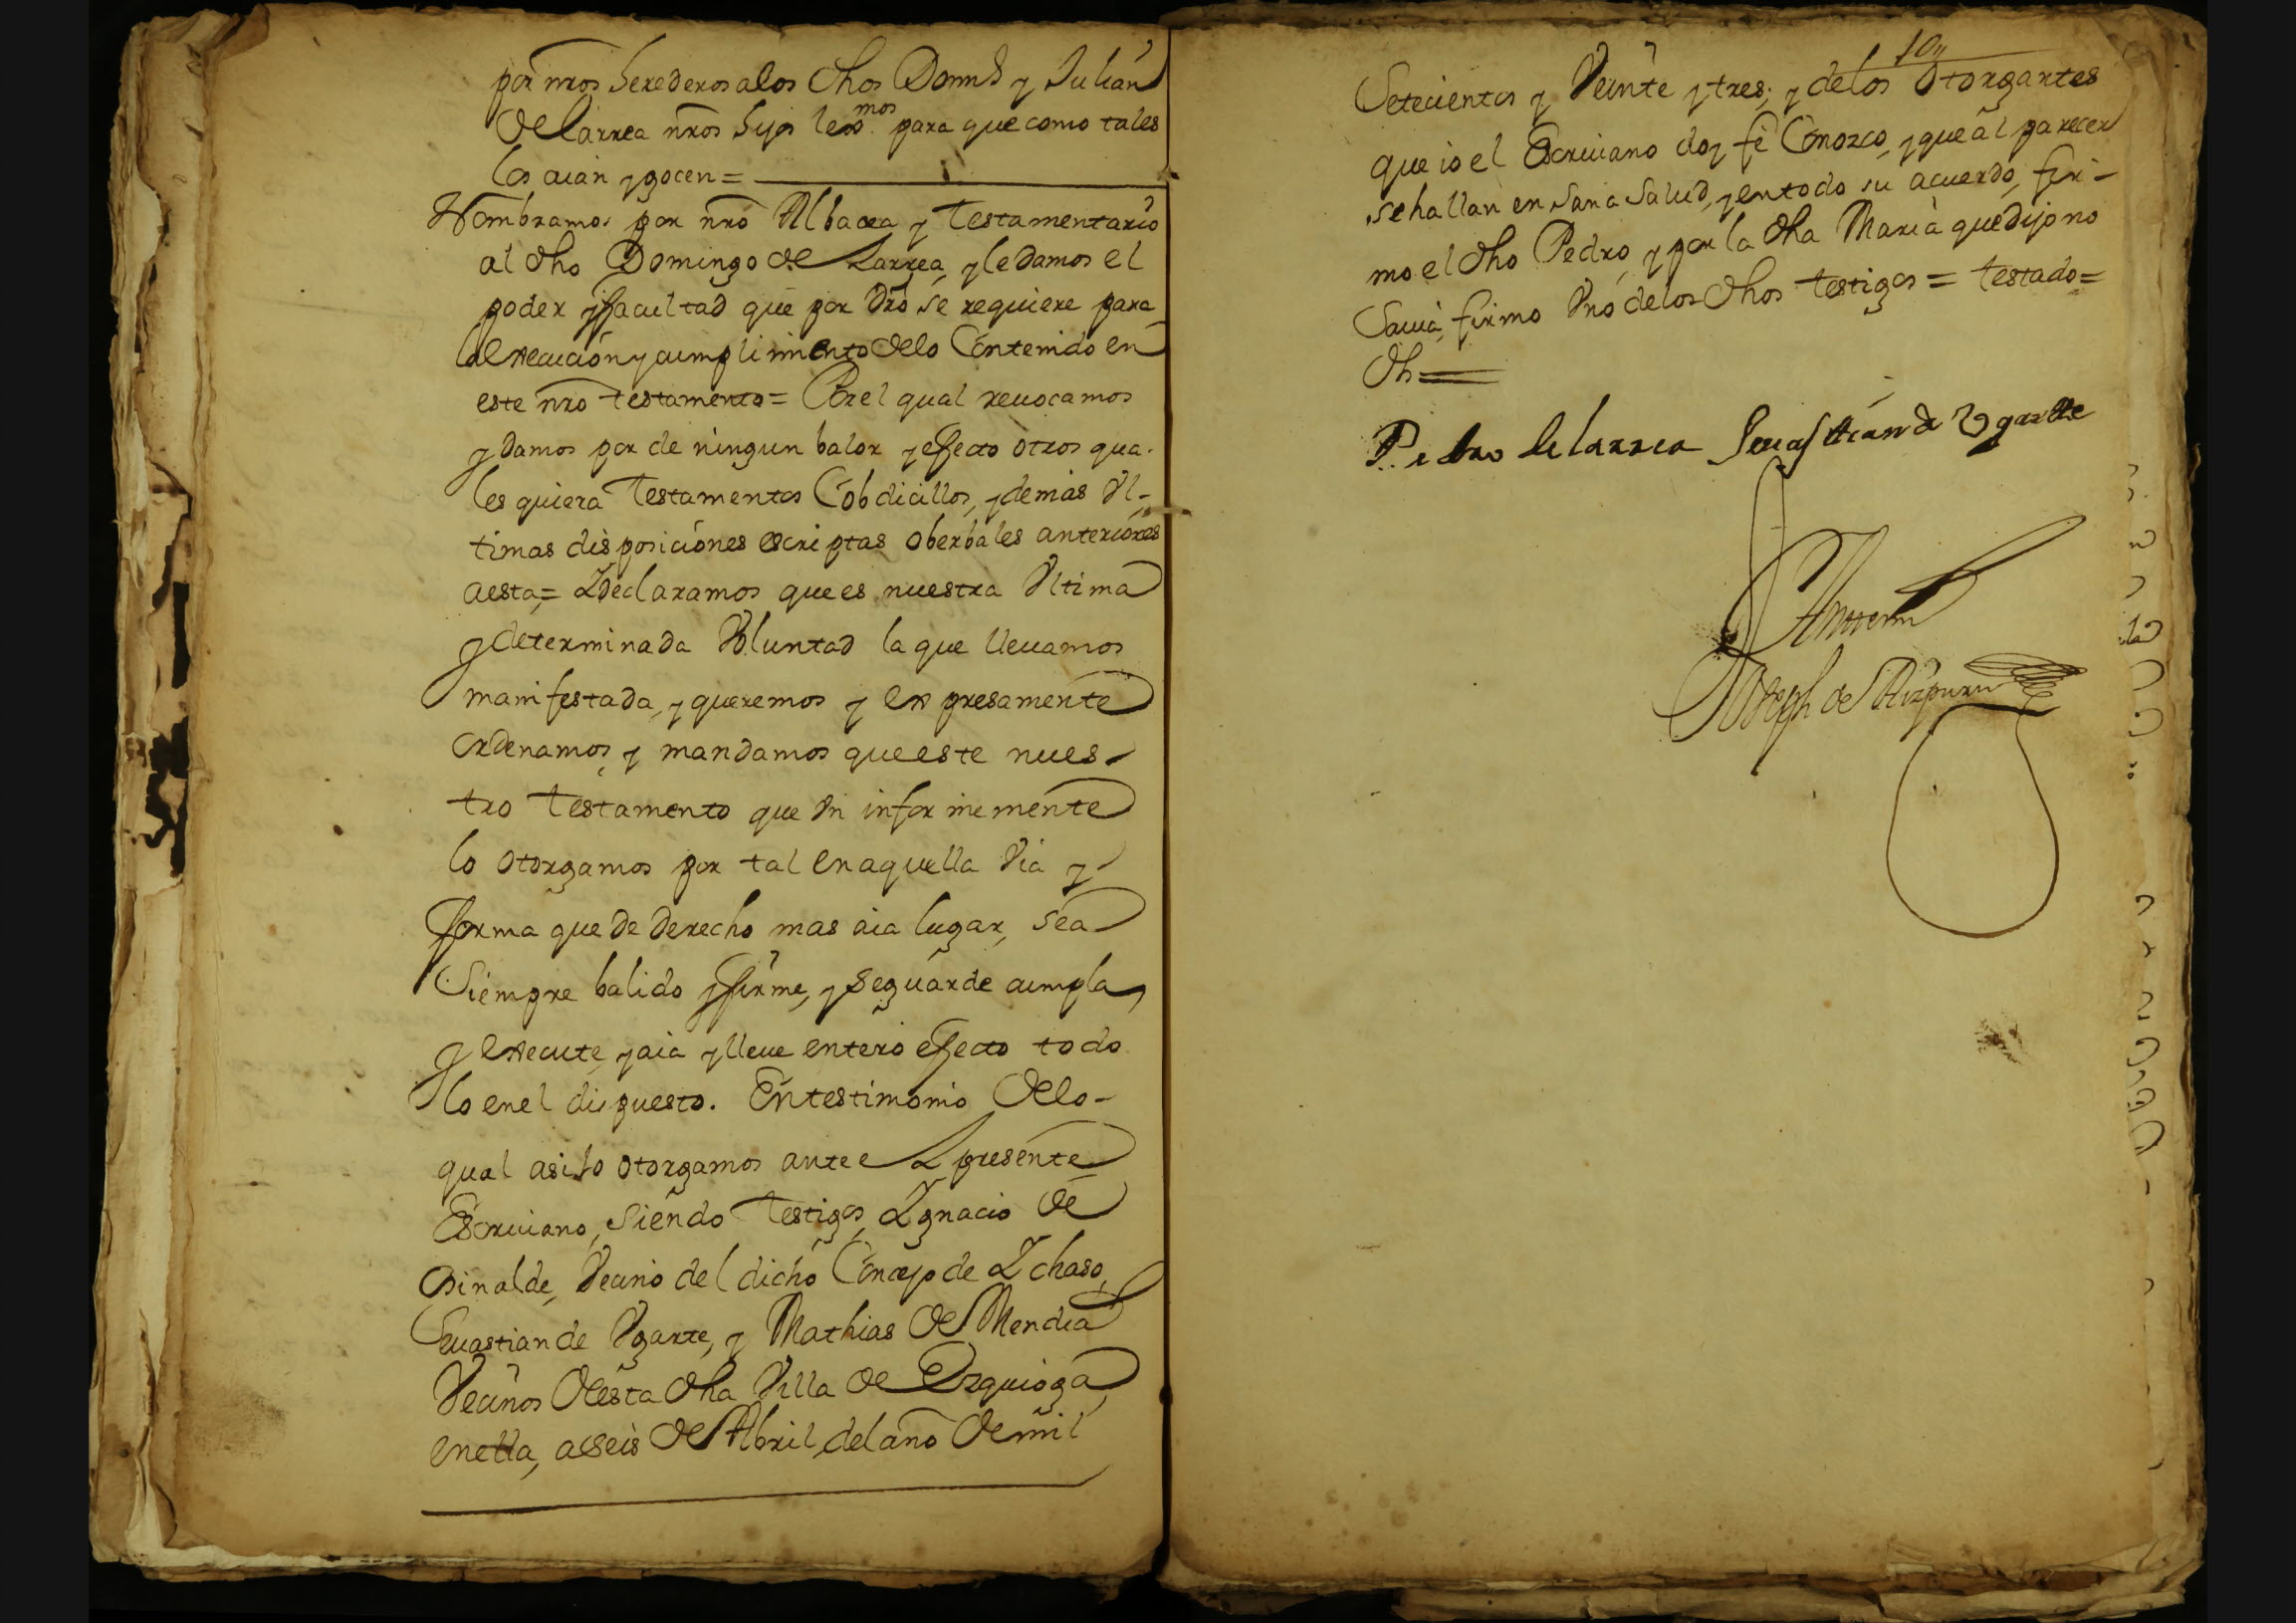 por nros herederos a los dhos Domo y Julian
de larrea nros hijos lexmos para que como tales
los aian y gocen =
Nombramos por nro Albacea y testamentario
al dho Domingo de Larrea, y le damos el
poder y facultad que por dro se requiere para
la execucion y cumplimiento de lo Contenido en
este nro testamento = Por el qual reuocamos
y damos por de ningun balor y effecto otros qua-
les quiera testamentos Cobdicillos, y demas Vl-
timas disposiciones escriptas o berbales anteriores
a esta = Y declaramos que es nuestra Vltima
y determinada Voluntad la que lleuamos
manifestada, y queremos y expresamente
ordenamos y mandamos que este nues-
tro testamento que Vninformemente
lo otorgamos por tal en aquella Via y
forma que de derecho mas aia lugar, sea
Siempre balido y firme, y se guarde cumpla,
y execute, y aia y lleue entero effecto todo
lo en el dispuesto. En testimonio de lo
qual asi lo otorgamos ante el presente
Escriuano, siendo testigos, Ygnacio de
Osinalde, Vecino del dicho Concejo de Ychaso,
Seuastian de Vgarte, y Mathias de Mendia
Vecinos desta dha Villa de Ezquioga
en ella, a seis de Abril, del año de mil
10
Setecientos y Veinte y tres; y de los Otorgantes
que io el Escriuano doy fe Conozco, y que al parecer
se hallan en sana salud, y en todo su acuerdo, fir-
mo el dho Pedro, y por la dha Maria que dijo no
Sauia, firmo Vno de los dhos testigos = testado =
dh =
Pedro de larrea Seuastian de Vgartte
Ante mi
Joseph de Aizpuru